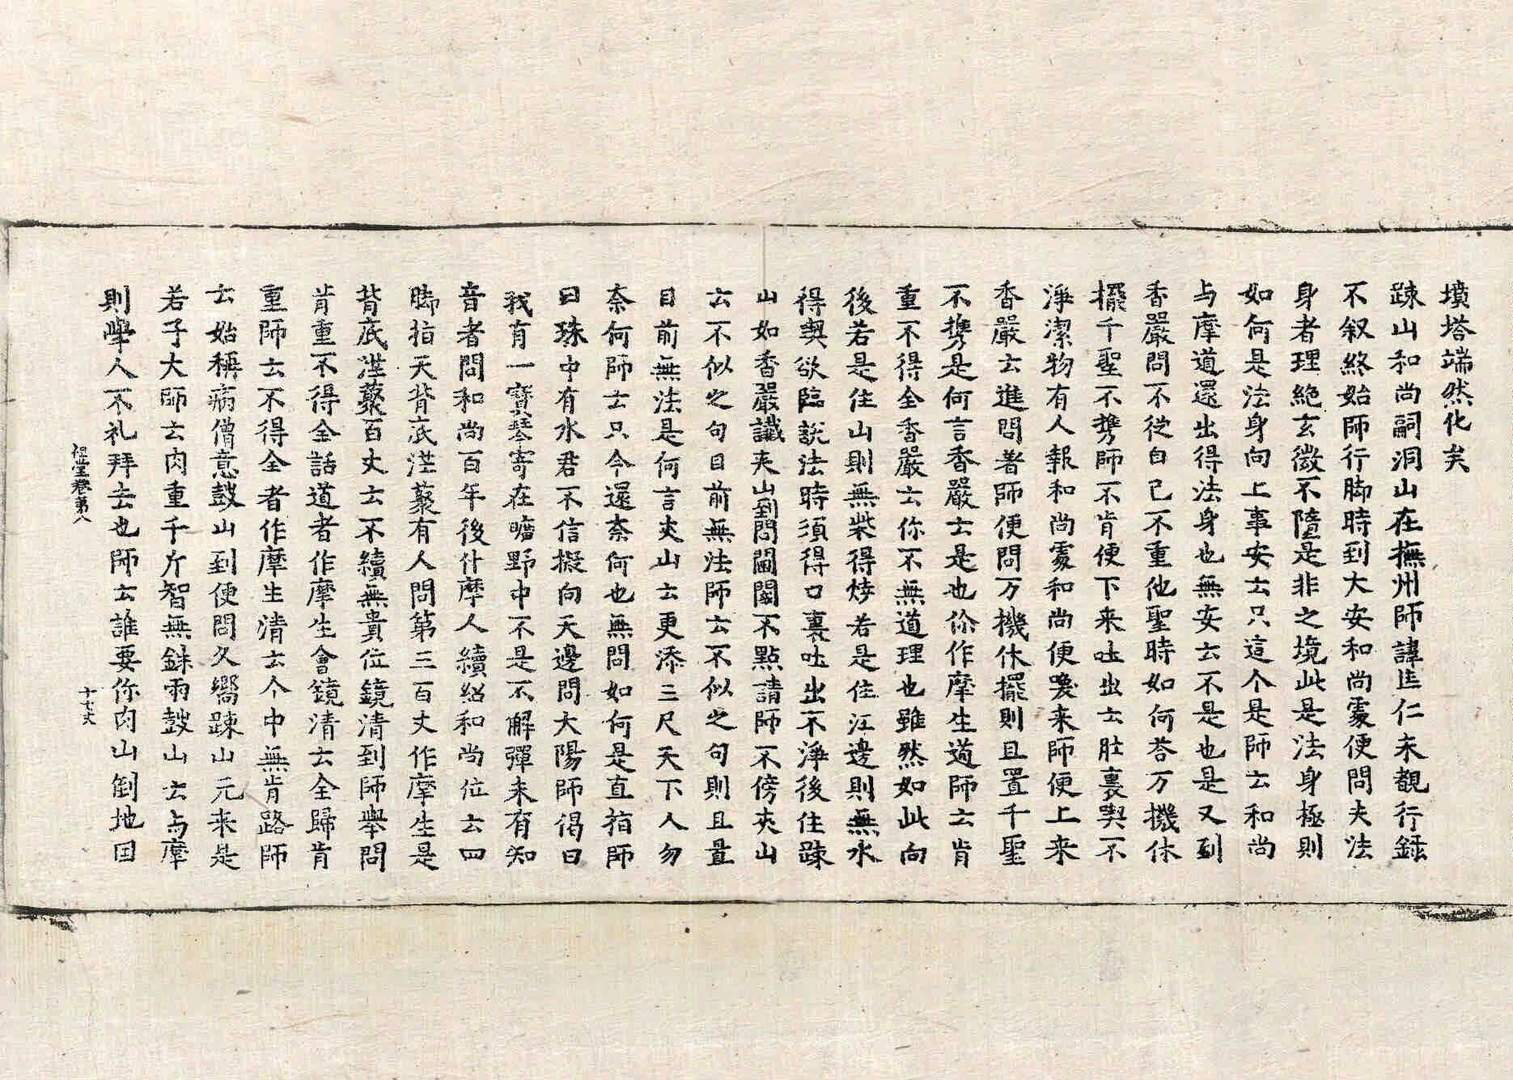 墳塔端然化矣
踈山和尚嗣洞山在撫州師諱匡仁未覩行錄
不叙終始師行脚時到大安和尚處便問夫法
身者理絶玄微不墮是非之境此是法身極則
如何是法身向上事安云只這个是師云和尚
与摩道還出得法身也無安云不是也是又到
香嚴問不從自己不重他聖時如何荅万機休
擺千聖不携師不肯便下来吐出云肚裏喫不
淨潔物有人報和尚處和尚便喚来師便上来
香嚴云進問著師便問万機休擺則且置千聖
不携是何言香嚴云是也你作摩生道師云肯
重不得全香嚴云你不無道理也雖然如此向
後若是住山則無柴得燒若是住江邊則無水
得喫欲臨說法時須得口裏吐出不淨後住踈
山如香嚴讖夾山到問閫閫不點請師不傍夾山
云不似之句目前無法師云不似之句則且置
目前無法是何言夾山云更添三尺天下人勿
奈何師云只今還奈何也無問如何是直指師
曰珠中有水君不信擬向天邊問太陽師偈曰
我有一寶琴寄在曠野中不是不解彈未有知
音者問和尚百年後什摩人續紹和尚位云四
脚指天背底茫藂有人問第三百丈作摩生是
背底茫藂百丈云不續無貴位鏡清到師舉問
肯重不得全話道者作摩生會鏡清云全歸肯
重師云不得全者作摩生清云个中無肯路師
云始稱病僧意皷山到便問久嚮踈山元来是
若子大師云肉重千斤智無銖兩皷山云与摩
則學人不礼拜去也師云誰要你肉山倒地因
祖堂卷第八
十七丈